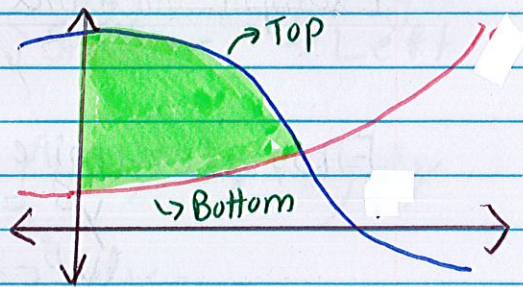 Top
Bottom